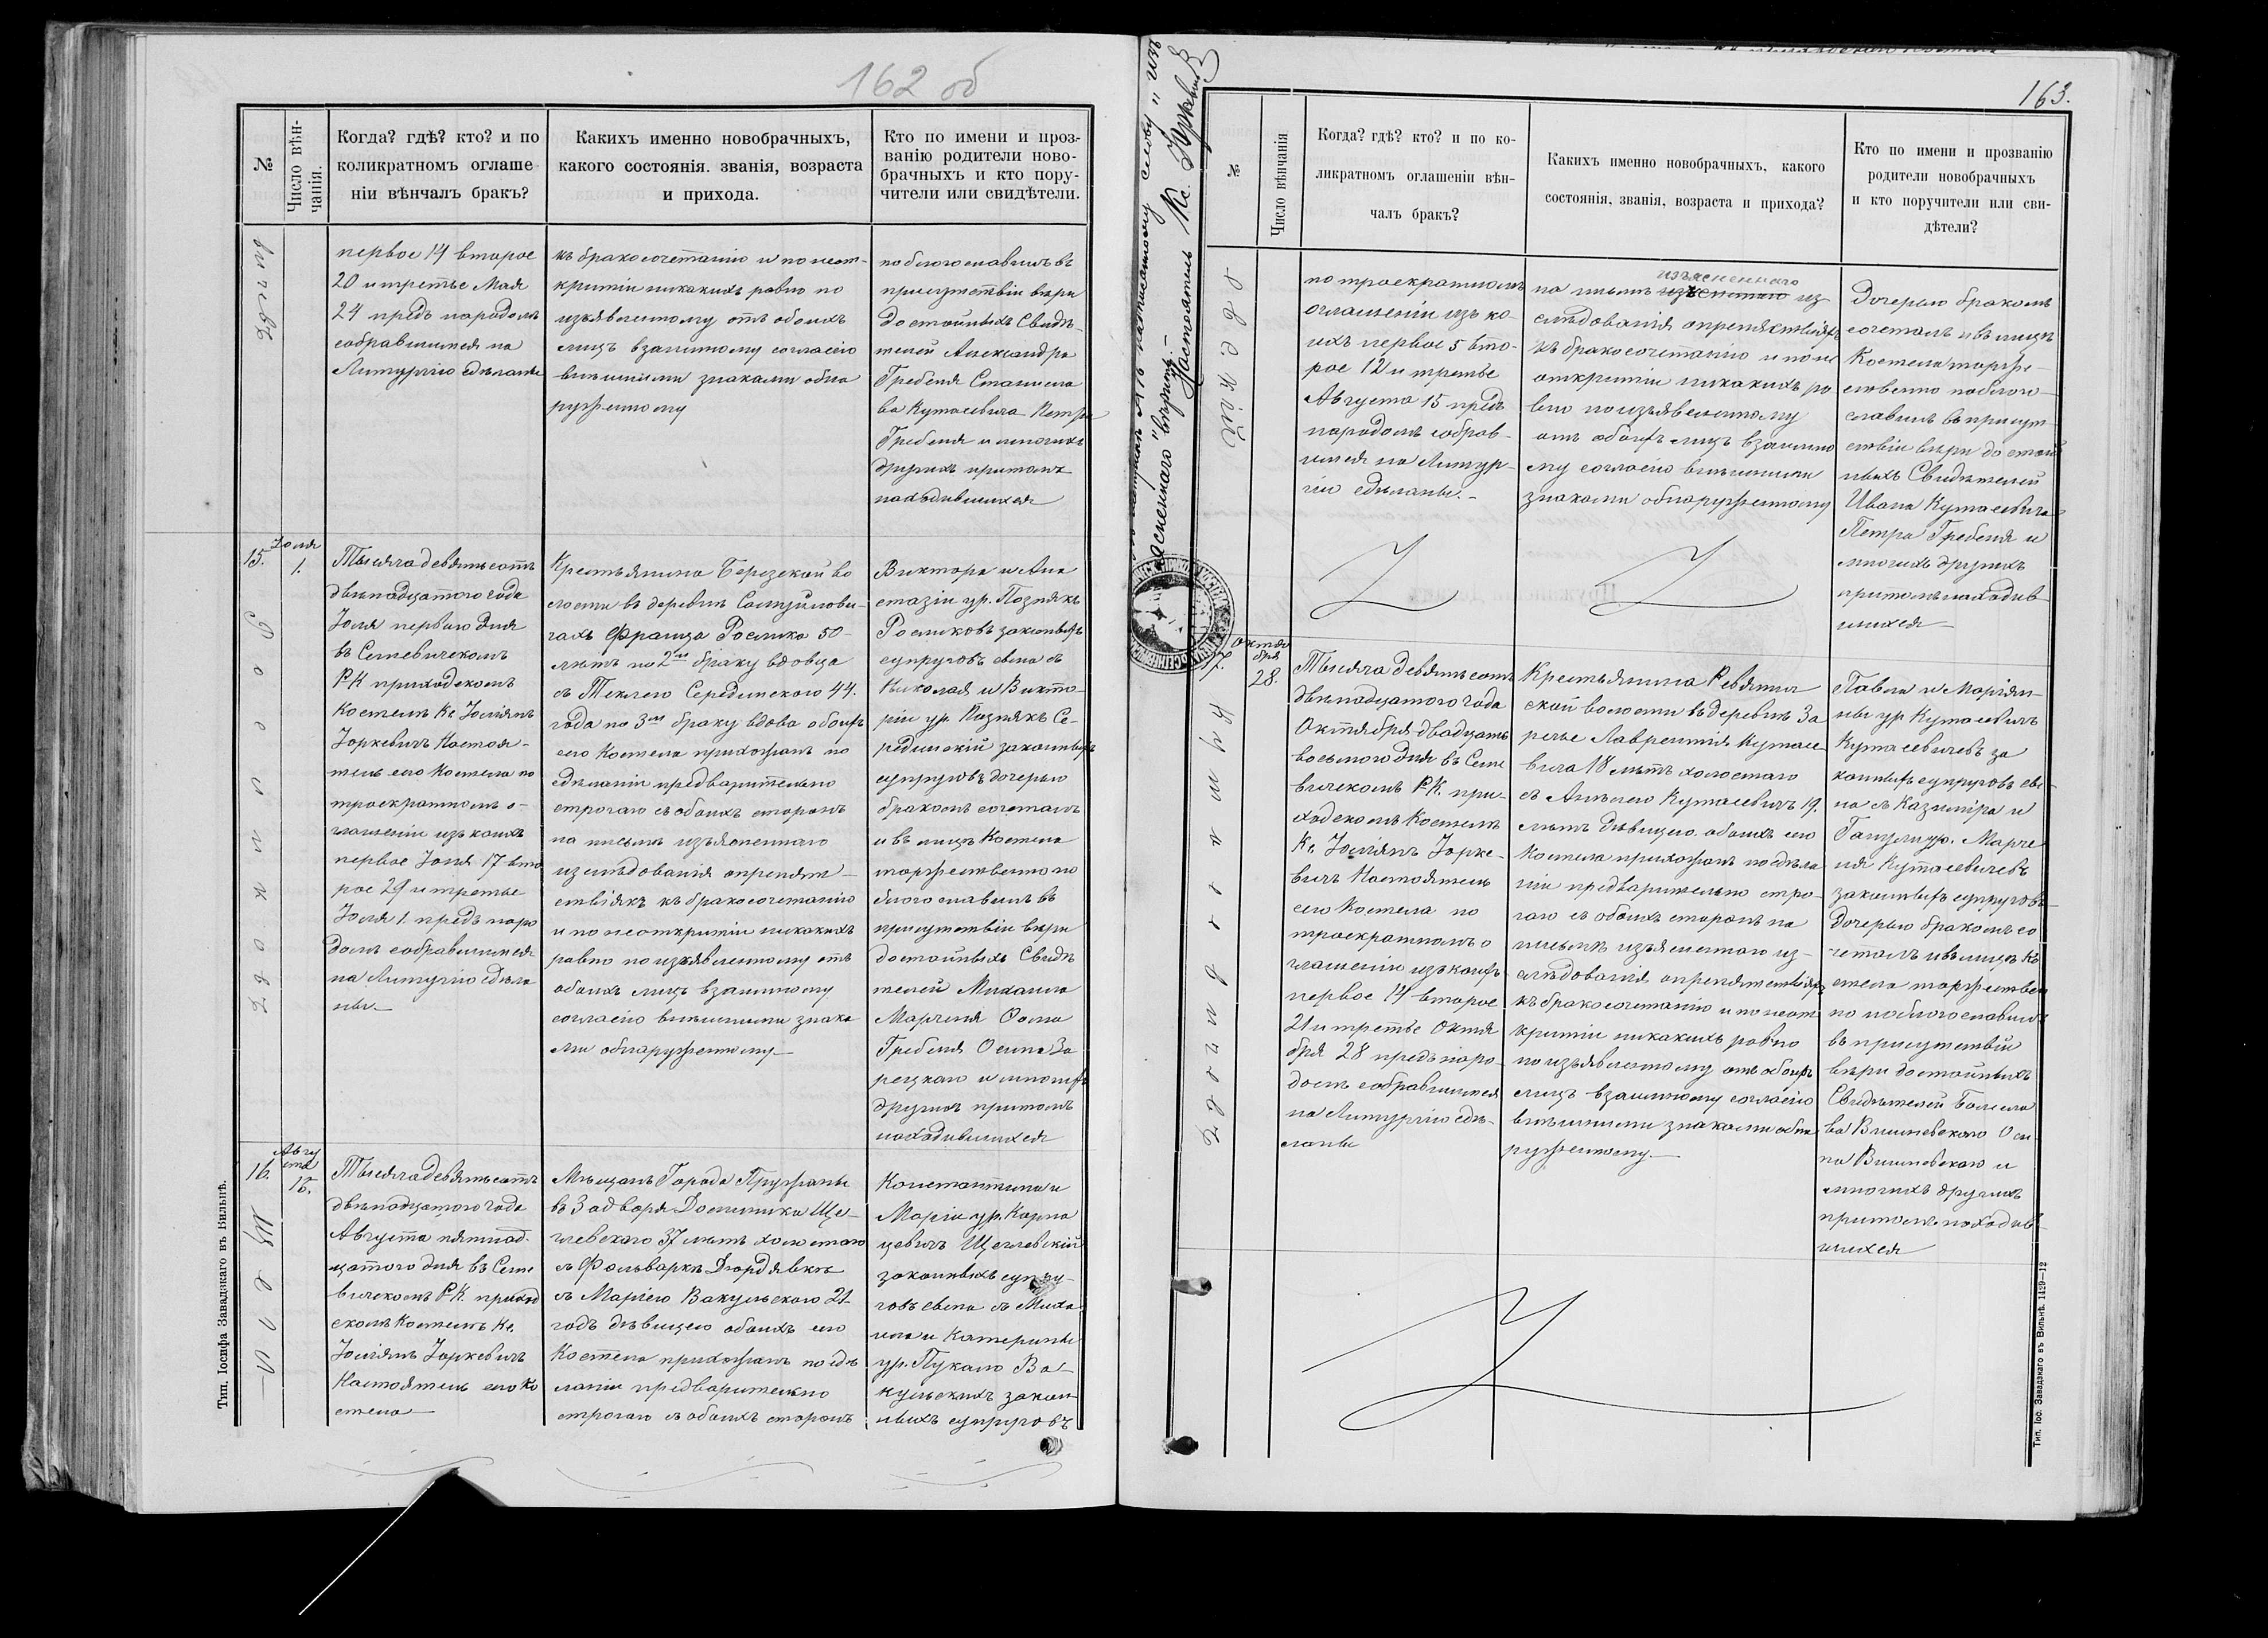 162 об
№
Число вѣн-
чанія.
Когда? гдѣ? кто? и по
коликратномъ оглаше
ніи вѣнчалъ бракъ?
Какихъ именно новобрачныхъ,
какого состоянія. званія, возраста
и прихода.
Кто по имени и проз-
ванію родители ново-
брачныхъ и кто пору-
чители или свидѣтели.
вичевъ
первое 14 второе
20 и третье Мая
24 предъ народомъ
собравшимся на
Литургію сдѣланы
къ бракосочетанію и по неот-
крытіи никакихъ равно по
изъявленному отъ обоихъ
лицъ взаимному согласію
внѣшними знаками обна
руженному
поблагословилъ въ
присутствіи вѣри
достойныхъ Свидѣ-
телей Александра
Гребеня Станисла
ва Кутаевича Петра
Гребеня и многихъ
другихъ притомъ
находившихся
15.
Іюля
1.
Росликовъ
Тысяча девятьсотъ
двѣнадцатого года
Іюля перваго дня
въ Сегневичскомъ
Р.К. приходскомъ
Костелѣ Кс. Юліянъ
Юркевичъ Настоя-
тель сего Костела по
троекратномъ о-
глашеніи изъ коихъ
первое Іюня 17 вто
рое 24 и третье
Іюля 1. предъ наро
домъ собравшимся
на Литургію сдѣла
ны.-
Крестьянина Березской во
лости въ деревнѣ Самуйлови-
чахъ Франца Рослика 50-
лѣтъ по 2мъ браку вдовца
съ Теклею Серединскою 44.
года по 3мъ браку вдова обоихъ
сего Костела прихожанъ по
сдѣланіи предварительно
строгаго съ обоихъ сторонъ
на письмѣ изъясненнаго
изслѣдованія о препят-
ствіяхъ къ бракосочетанію
и по неоткрытіи никакихъ
равно по изъявленному отъ
обоихъ лицъ взаимному
согласію внѣшними знака
ми обнаруженному-
Виктора и Ана
стазіи ур. Познякъ
Росликовъ законныхъ
супруговъ сына съ
Николая и Викто-
ріи ур Познякъ Се-
рединскій законныхъ
супруговъ дочерью
бракомъ сочеталъ
и въ лицѣ Костела
торжественно по
благословилъ въ
присутствіи вѣри
достойныхъ Свидѣ
телей Михаила
Марченя Фомы
Гребеня Осипа За
рецкаго и многихъ
другихъ притомъ
находившихся
16.
Авгу
ста
15.
Щегл-
Тысяча девятьсотъ
двѣнадцатого года
Августа пятнад-
цатого дня въ Сегне
вичскомъ Р.К. приход
скомъ Костелѣ Кс.
Юліянъ Юркевичъ
Настоятель сего Ко
стела-
Мѣщанъ Города Пружаны
въ Задворя Доминика Ще-
глевскаго 37 лѣтъ холостого
съ Фольварка Дюрдявкѣ
съ Маріею Вакульскою 21
годъ дѣвицею обоихъ сего
Костела прихожанъ по сдѣ
ланіи предварительно
строгаго съ обоихъ сторонъ
Константина и
Маріи ур. Карпо
цевичъ Щеглевскій
законныхъ супру-
говъ сына съ Миха
ила и Катерины
ур. Пукало Ва-
кульскихъ закон-
ныхъ супруговъ
Тип. Іосифа Завадзкаго въ Вильнѣ.
163.
№
Число вѣнчанія
Когда? гдѣ? кто? и по ко-
ликратномъ оглашеніи вѣн-
чалъ бракъ?
Какихъ именно новобрачныхъ, какого
состоянія, званія, возраста и прихода?
Кто по имени и прозванію
родители новобрачныхъ
и кто поручители или сви-
дѣтели?
Настоятель Кс.
евскій
по троекратномъ
оглашеніи изъ ко-
ихъ первое 5 вто-
рое 12 и третье
Августа 15 предъ
народомъ собрав-
шимся на Литур-
гіи сдѣланы.-
изъясненнаго
на письмѣ из-
слѣдованія о препятствіяхъ
къ бракосочетанію и по не
открытіи никакихъ ра
вно по изъявленному
отъ обоихъ лицъ взаимно
му согласію внѣшними
знаками обнаруженному
Дочерью бракомъ
сочеталъ и въ лицѣ
Костела торже-
ственно поблаго-
славилъ въ присут-
ствіи вѣри достой
ныхъ Свидѣтелей
Ивана Кутаевича
Петра Гребеня и
многихъ другихъ
притомъ находив
шихся-
17.
Октяб
бря
28.
Кутаевичовъ
Тысяча девятьсотъ
двѣнадцатого года
Октября двадцать
восьмого дня въ Сегне
вичскомъ Р.К. при-
ходскомъ Костелѣ
Кс. Юліянъ Юрке-
вичъ Настоятель
сего Костела по
троекратномъ о
глашеніи изъ коихъ
первое 14 второе
21 и третье Октя
бря 28 предъ наро-
домъ собравшимся
на Литургію сдѣ-
ланы
Крестьянина Ревятич
ской волости въ деревнѣ За
речье Лаврентія Кутаев
вича 18 лѣтъ холостаго
съ Анѣлею Кутаевичъ 19.
лѣтъ дѣвицею обоихъ сего
Костела прихожанъ по сдѣла
ніи предварительно стро-
гаго съ обоихъ сторонъ на
письмѣ изъясненнаго из-
слѣдованія о препятствіяхъ
къ бракосочетанію и по неот
крытіи никакихъ равно
по изъявленному отъ обоихъ
лицъ взаимному согласію
внѣшними знаками обна
руженному.-
Павла и Маріян-
ны ур Кутаевичъ
Кутаевичевъ за
конныхъ супруговъ сы-
на съ Казиміра и
ур. Марче
ня Кутаевичевъ
законныхъ супруговъ
Дочерью бракомъ со
четалъ и въ лицѣ Ко
стела торжествен
но поблагославилъ
въ присутствіи
вѣри достойныхъ
Свидѣтелей Болесла
ва Вишневскаго Оси-
па Вишневскаго и
многихъ другихъ
притомъ находив-
шихся
Тип. Іос. Завадзкаго въ Вильнѣ. 1429—12